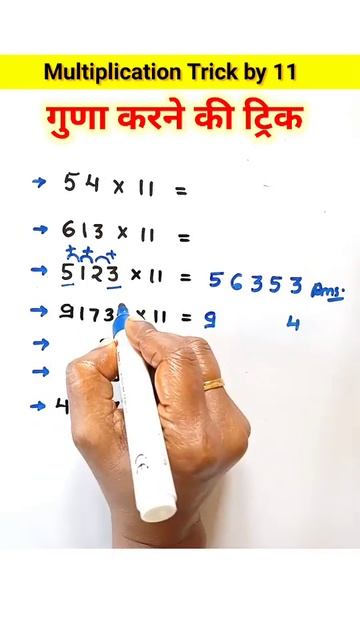 Multiplication Trick by 11
गुणा करने की ट्रिक
→ 54 × 11 =
→ 613 × 11 =
+ + +
→ 5123 × 11 = 56353 Ans.
→ 9173 × 11 = 9 4
→
→
→ 4